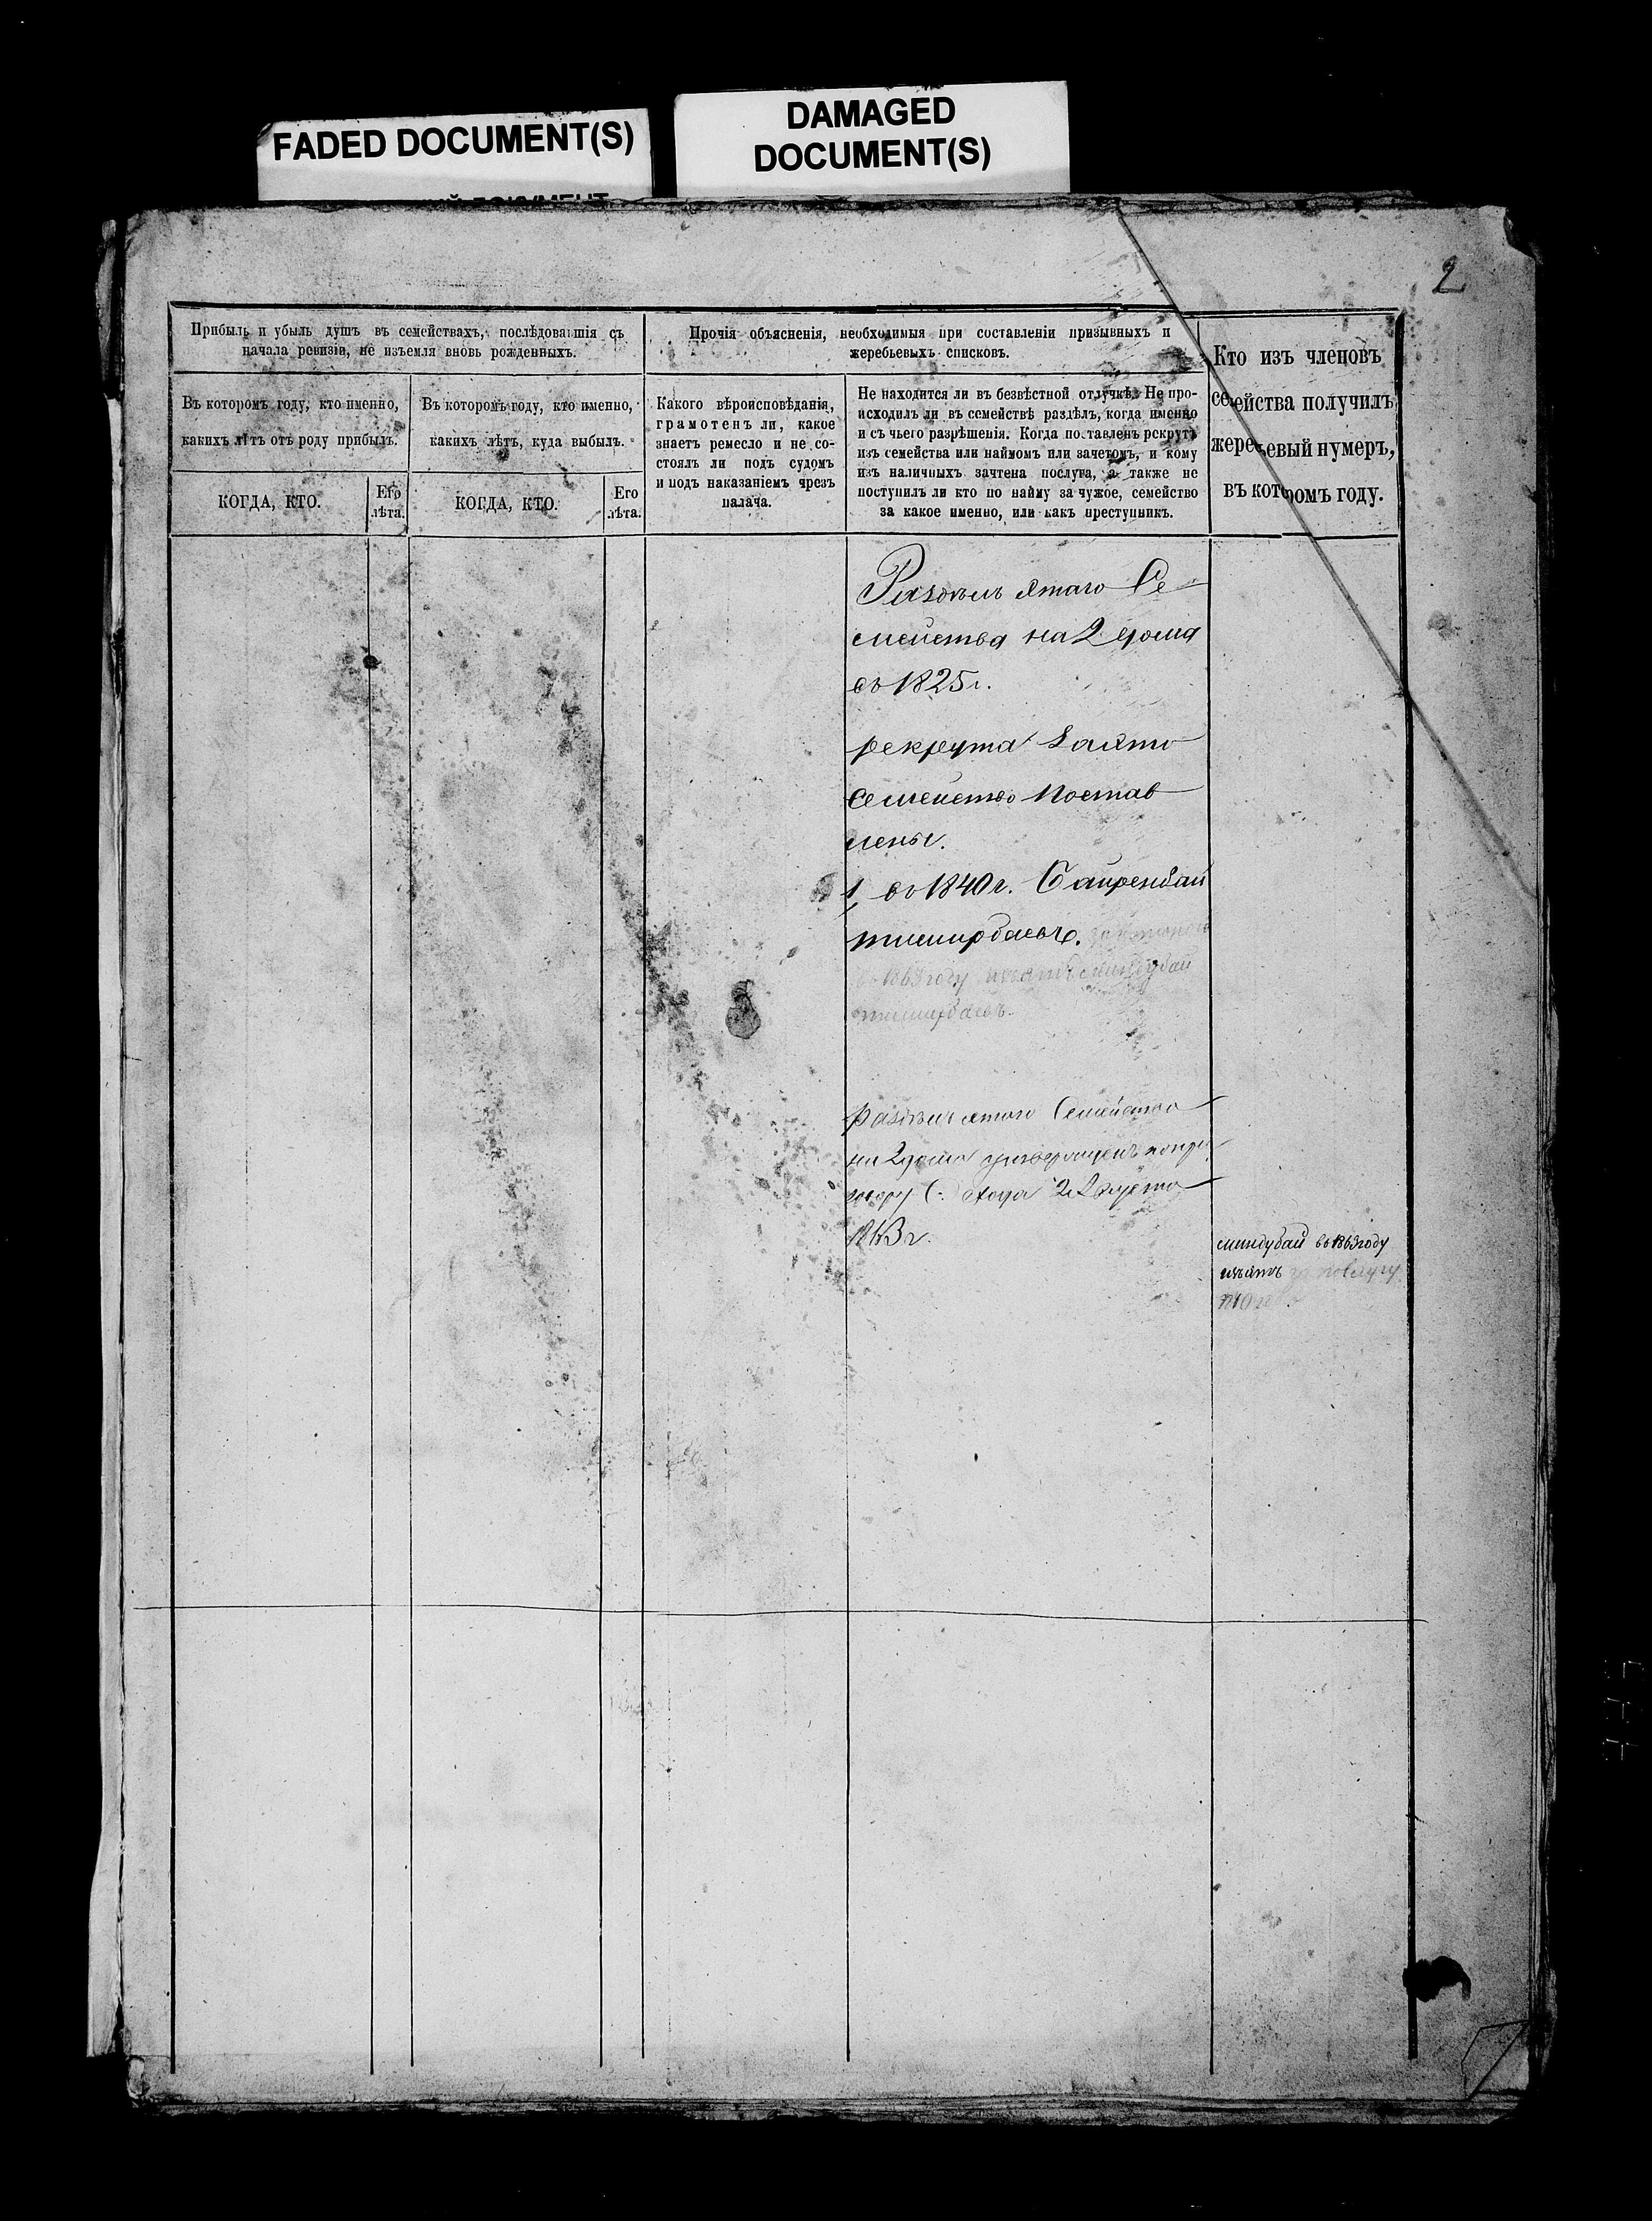 FADED DOCUMENT(S)
DAMAGED
DOCUMENT(S)
2
Прибыль и убыль душъ въ семействахъ, послѣдовавшія съ
начала ревизіи, не изъемля вновь рожденныхъ.
Въ которомъ году, кто именно,
какихъ лѣтъ отъ роду прибылъ.
КОГДА, КТО.
Его
лѣта.
Въ которомъ году, кто именно,
какихъ лѣтъ, куда выбылъ.
КОГДА, КТО.
Его
лѣта.
Прочія объясненія, необходимыя при составленіи призывныхъ и
жеребьевыхъ списковъ.
Какого вѣроисповѣданія,
грамотенъ ли, какое
знаетъ ремесло и не со-
стоялъ ли подъ судомъ
и подъ наказаніемъ чрезъ
палача.
Не находится ли въ безвѣстной отлучкѣ. Не про-
исходилъ ли въ семействѣ раздѣлъ, когда именно
и съ чьего разрѣшенія. Когда поставленъ рекрутъ
изъ семейства или наймомъ или зачетомъ, и кому
изъ наличныхъ зачтена послуга, а также не
поступилъ ли кто по найму за чужое, семейство
за какое именно, или какъ преступникъ.
Кто изъ членовъ
семейства получилъ
жеребьевый нумеръ,
въ которомъ году.
Раздѣлъ этаго Се-
мейства на 2 дома
въ 1825 г.
рекрута за это
Семейство постав
лены.
1, въ 1840 г.
году изъятъ
Раздѣлъ этого Семейства
на 2 дома
2 Августа
въ 1863 году
изъятъ за послугу